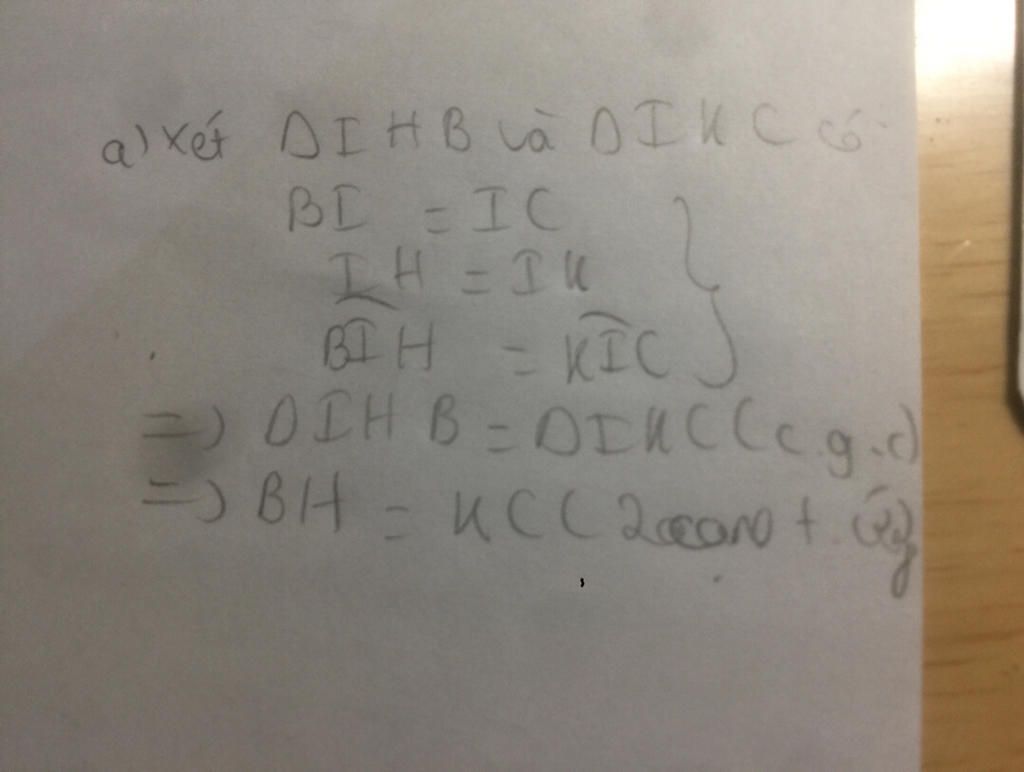 a) Xét ΔIHB và ΔIKC có
BI = IC
IH = IK
BIH = KIC
=) ΔIHB = ΔIKC (c.g.c)
=) BH = KC (2 t.ứ)